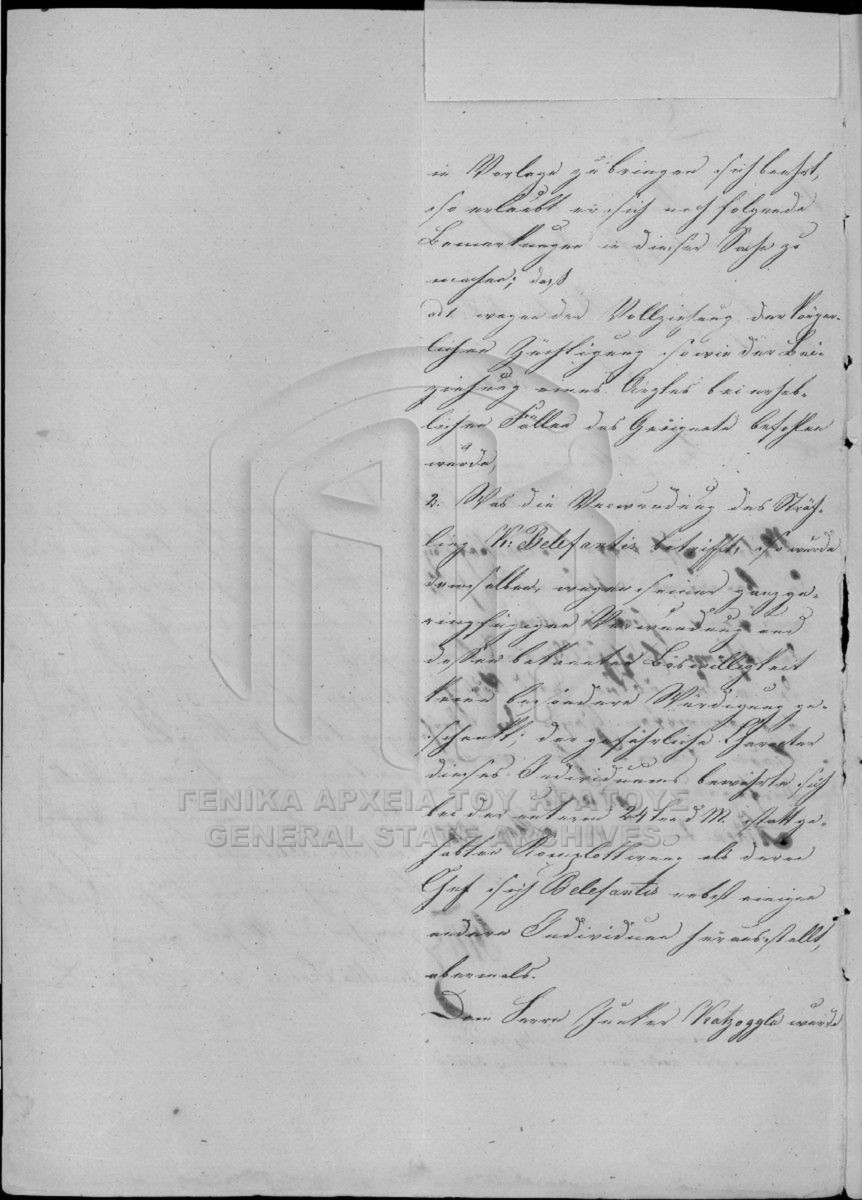 in Vorlage zu bringen sich beehrt,
so erlaubt er sich noch folgende
Bemerkungen in dieser Sache zu
machen; daß
ad 1. wegen der Vollziehung der körper-
lichen Züchtigung sowie der Bei-
ziehung eines Arztes bei erheb-
lichen Fällen das Geeignete befohlen
wurde,
2. Was die Verwundung des Sträf-
ling K. Belefantis betrifft, so wurde
demselben, wegen seiner ganz ge-
ringfügigen Verwundung und
dessen bekannten Böswilligkeit
keine besondere Würdigung ge-
schenkt; der gefährliche Charakter
dieses Individuums bewährte sich
bei der unterm 24ten d. M. stattge-
habten Komplottirung als deren
Chef sich Belefantis nebst einigen
andern Individuen herausstellt,
abermals.
Dem Herrn Junker Katzoggle wurde
ΓΕΝΙΚΑ ΑΡΧΕΙΑ ΤΟΥ ΚΡΑΤΟΥΣ
GENERAL STATE ARCHIVES